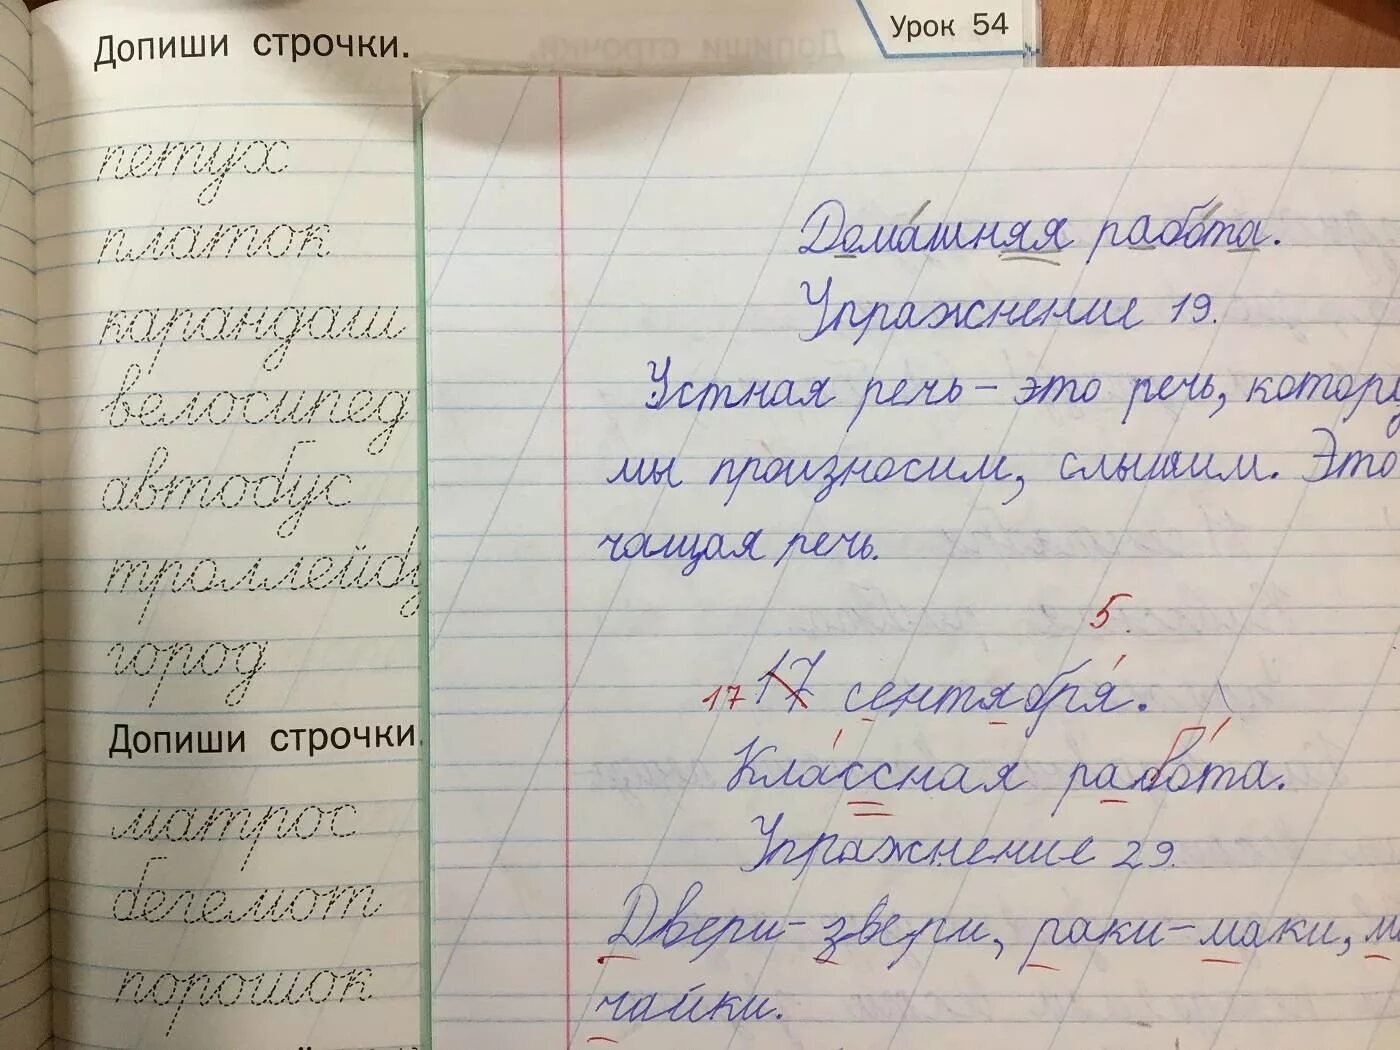 Допиши строчки.
Урок 54
петух
платок
карандаш
велосипед
автобус
троллейбу
город
Допиши строчки.
матрос
бегемот
порошок
Домашняя работа.
Упражнение 19.
Устная речь – это речь, котору
мы произносим, слышим. Это
чащая речь.
5.
17 17 сентября.
Классная работа.
Упражнение 29.
Двери – звери, раки – маки, ма
чайки.